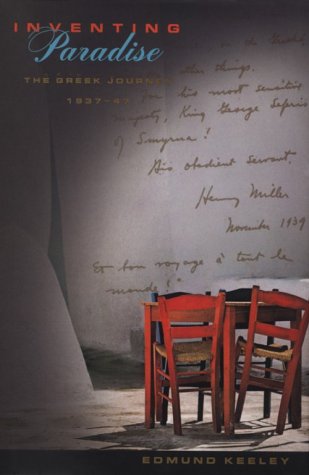 INVENTING
Paradise
THE GREEK JOURNEY
1937-47
other things.
his most sensitive
majesty, King George Seferis
of Smyrna!
His obedient servant,
Henry Miller
November 1939
Et bon voyage à tout le
monde!
EDMUND KEELEY